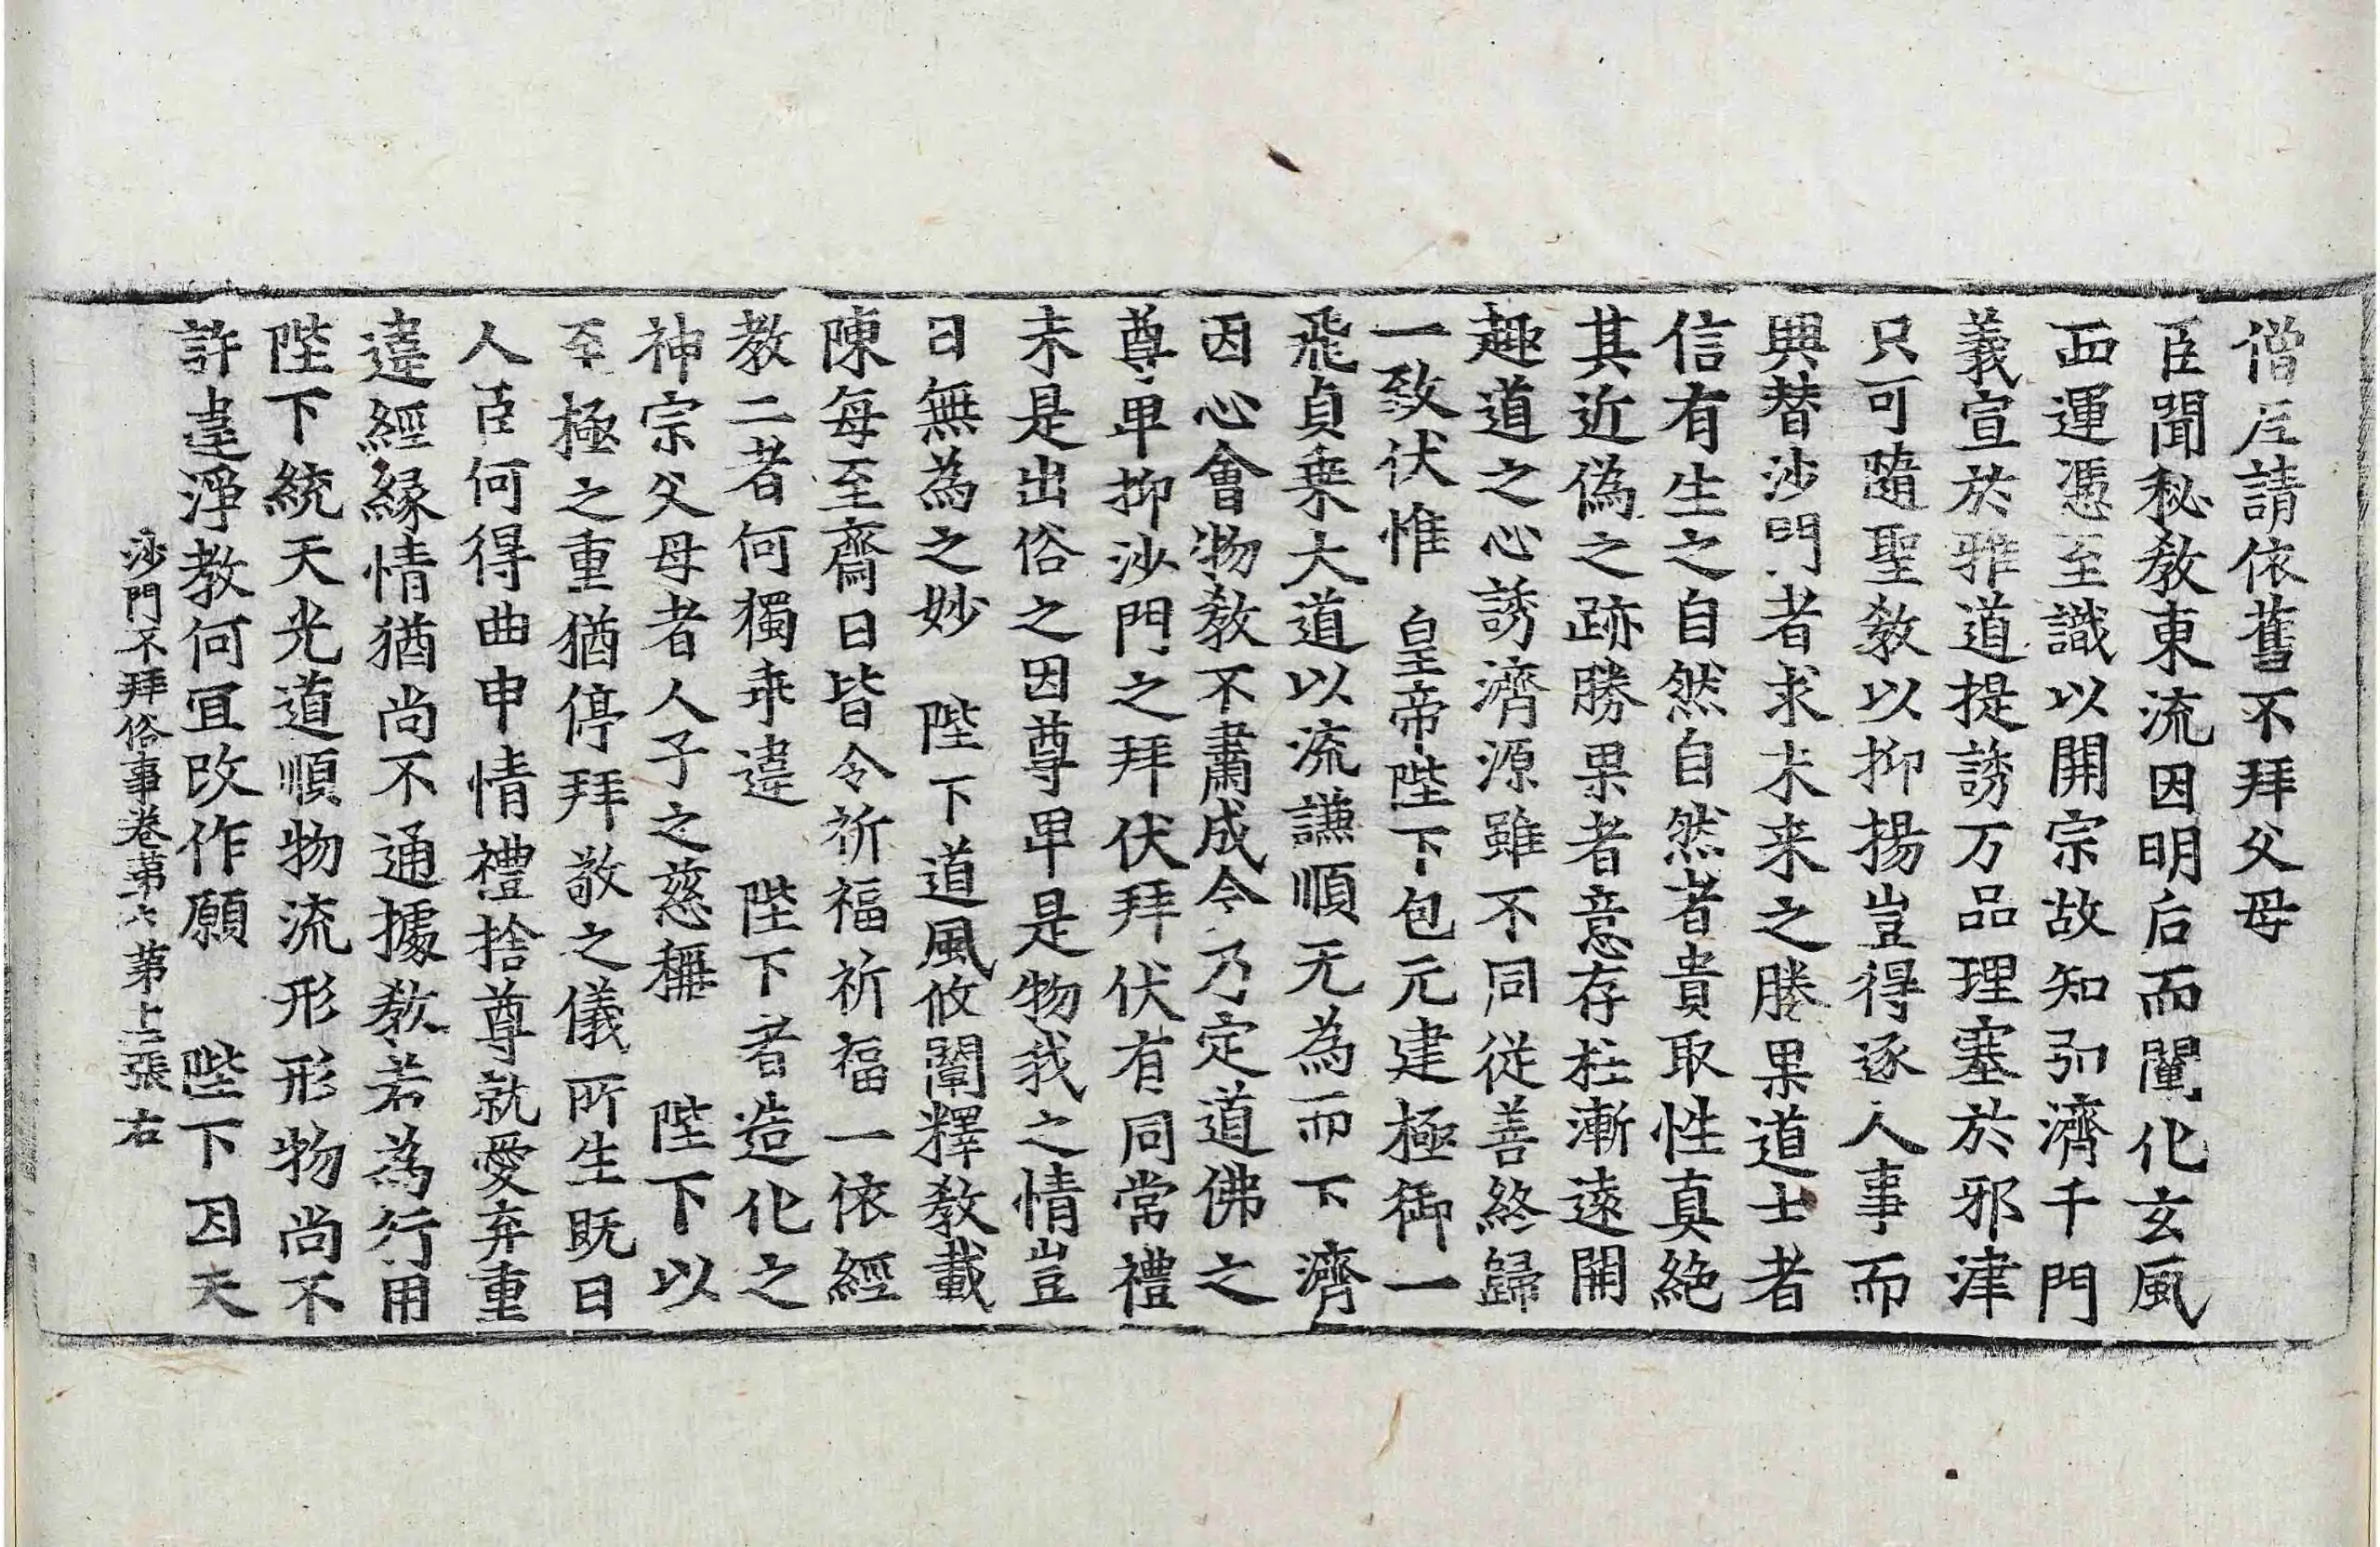 僧尼請依舊不拜父母
臣聞秘敎東流因明后而闡化玄風
西運憑至識以開宗故知引濟千門
義宣於雅道提誘万品理塞於邪津
只可隨聖敎以抑揚豈得逐人事而
興替沙門者求未来之勝果道士者
信有生之自然自然者貴取性真絶
其近僞之跡勝果者意存杜漸遠開
趣道之心誘濟源雖不同從善終歸
一致伏惟　皇帝陛下包元建極御一
飛貞乗大道以流謙順无為而下濟
因心會物敎不肅成今乃定道佛之
尊卑抑沙門之拜伏拜伏有同常禮
未是出俗之因尊卑是物我之情豈
曰無為之妙　陛下道風攸闡釋敎載
陳每至齋日皆令祈福祈福一依經
教二者何獨乖違　陛下者造化之
神宗父母者人子之慈稱　陛下以
至極之重猶停拜敬之儀所生既曰
人臣何得曲申情禮捨尊就愛弃重
違經縁情猶尚不通據敎若為行用
陛下統天光道順物流形形物尚不
許違淨教何冝改作願　陛下因天
沙門不拜俗事卷第六　第十二張　右